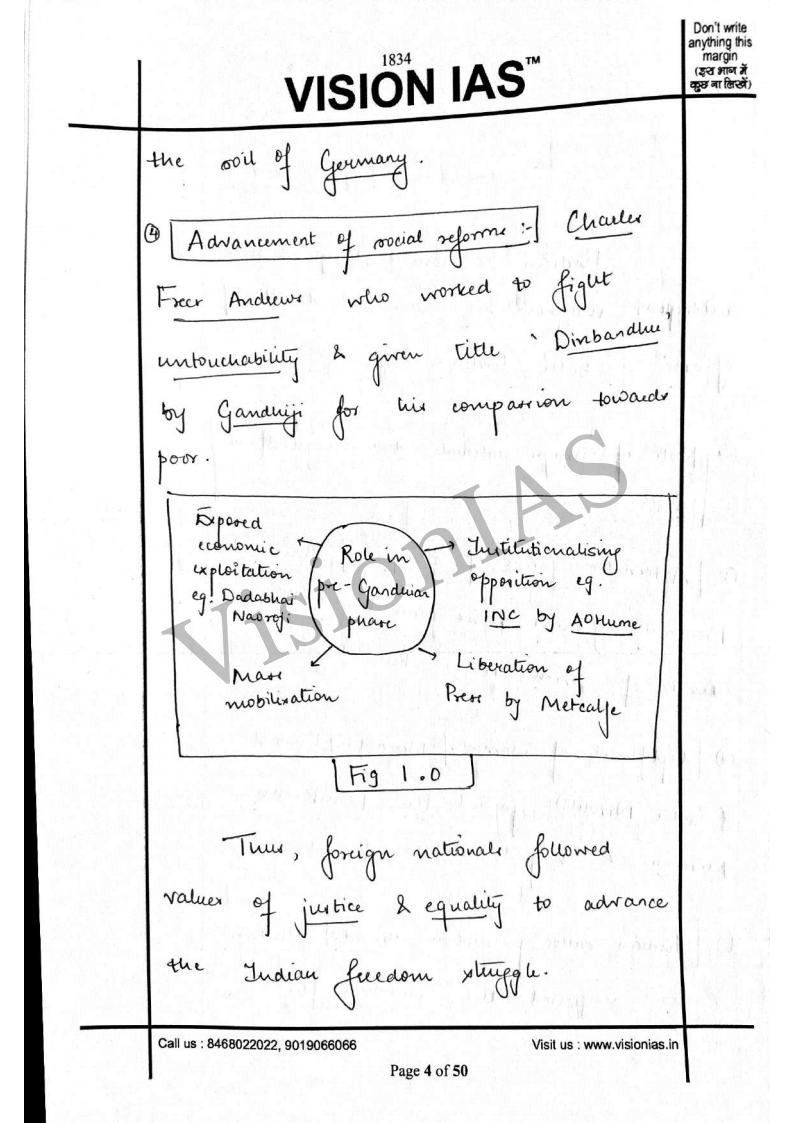 Don't write
anything this
margin
(इस भाग में
कुछ ना लिखें)
1834
VISION IAS™
the soil of Germany.
④ Advancement of social reforms :- Charles
Freer Andrews who worked to fight
untouchability & given title 'Dinbandhu'
by Gandhiji for his compassion towards
poor.
Exposed
economic
exploitation
eg! Dadabhai
Naoroji
Role in
pre-Gandhian
phase
Institutionalising
opposition eg.
INC by AOHume
Mass
mobilization
Liberation of
Press by Metcalfe
VisionIAS
Fig 1.0
Thus, foreign nationals followed
values of justice & equality to advance
the Indian freedom struggle.
Call us : 8468022022, 9019066066
Visit us : www.visionias.in
Page 4 of 50